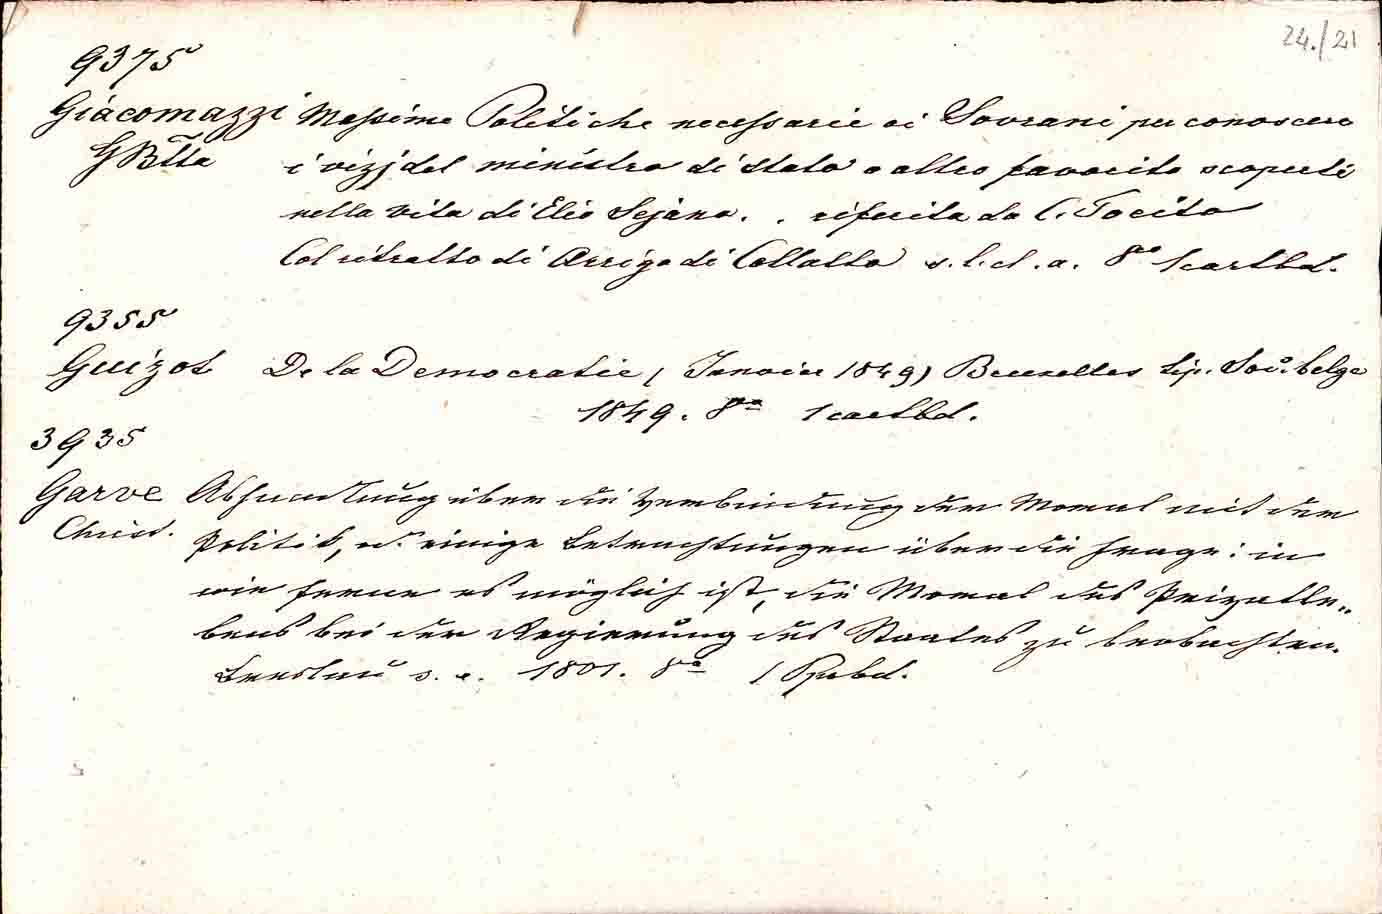 24./21
9375
Giacomazzi Massime Politiche necessarie ai Sovrani per conoscere
GBtta i vizj del ministro di stato o altro favorito scoperti
nella vita di Elio Sejano. . riferita da C. Tacito
Col ritratto di Arrigo di Collalto s. l. et. a. 8° 1 cartbd.
9355
Guizot De la Democratie (Janvier 1849) Bruxelles tip. Soc. belge
1849. 8° 1 cartbd.
3935
Garve Abhandlung über die Verbindung der Moral mit der
Christ. Politik, od. einige Betrachtungen über die Frage: in
wie ferne es möglich ist, die Moral des Privatle„
bens bei der Regierung des Staates zu beobachten.
Breslau s. 1801. 8° 1